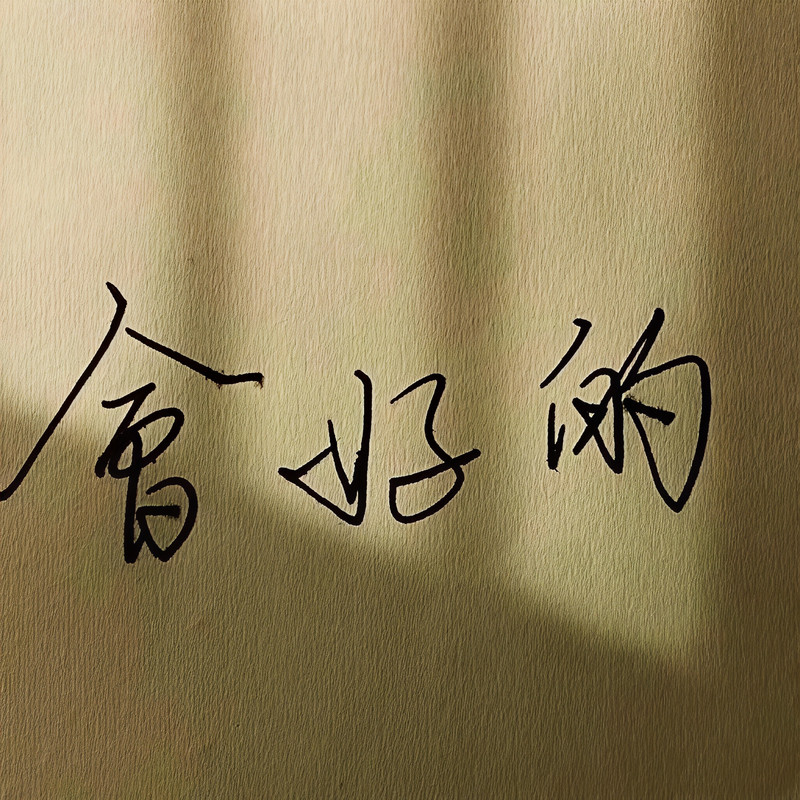 會好的